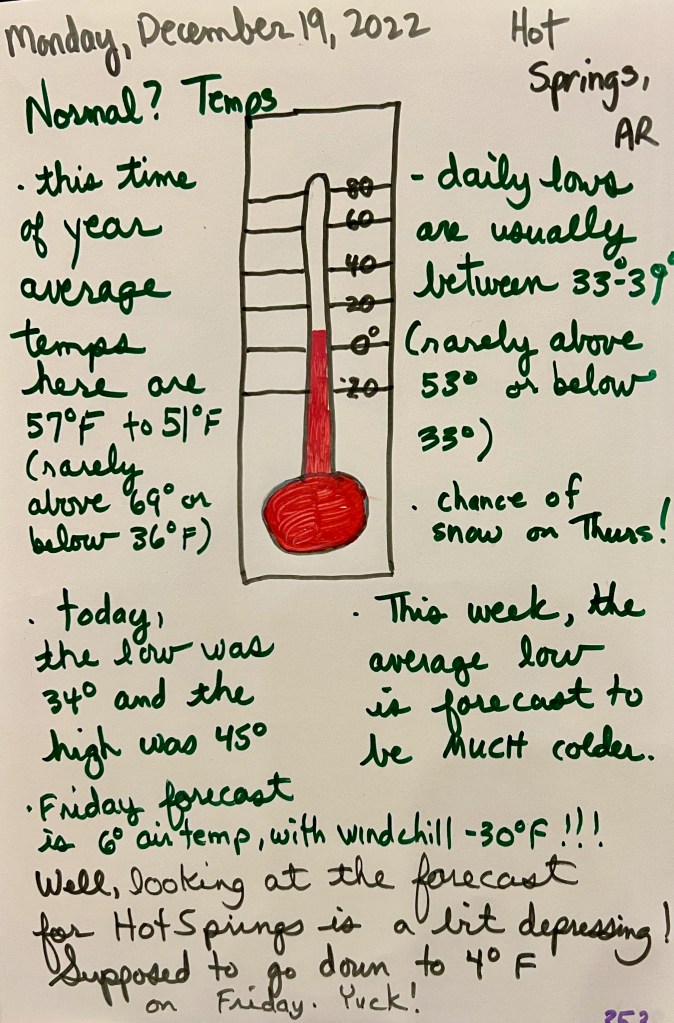 Monday, December 19, 2022
Hot
Springs,
AR
Normal? Temps
· this time
of year
average
temps
here are
57°F to 51°F
(rarely
above 69° or
below 36°F)
80
60
40
20
0°
-20
- daily lows
are usually
between 33°-39°
(rarely above
53° or below
33°)
· chance of
snow on Thurs!
· today,
the low was
34° and the
high was 45°
· This week, the
average low
is forecast to
be MUCH colder.
· Friday forecast
is 6° air temp, with windchill -30°F!!!
Well, looking at the forecast
for Hot Springs is a bit depressing!
Supposed to go down to 4°F
on Friday. Yuck!
353